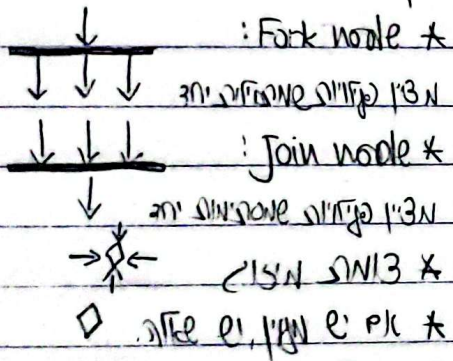 * Fork node:
מציין פעילויות שמתחילות יחד
* Join node:
מציין פעילויות שמסתיימות יחד
* צומת מיזוג
* אם יש מעוין, יש שאלה.